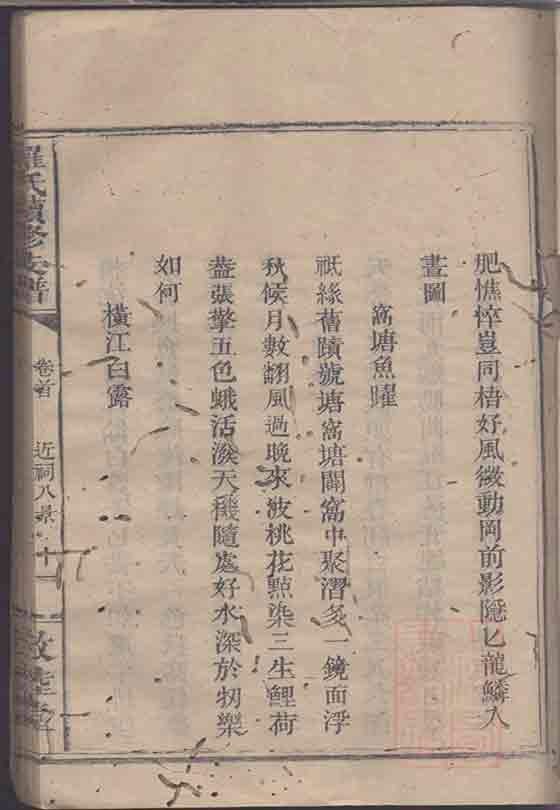 肥憔悴豈同梧好風微動岡前影隱匕龍鱗入
畫圖
窩塘魚曜
祇緣舊蹟號塘窩塘闢窩中聚潛多一鏡面浮
秋候月數翻風過晚來波桃花點染三生鯉荷
葢張擎五色蛾活潑天機隨處好水深於牣樂
如何
橫江白露
羅氏續修支譜
卷首
近祠八景
十一
敦陸堂